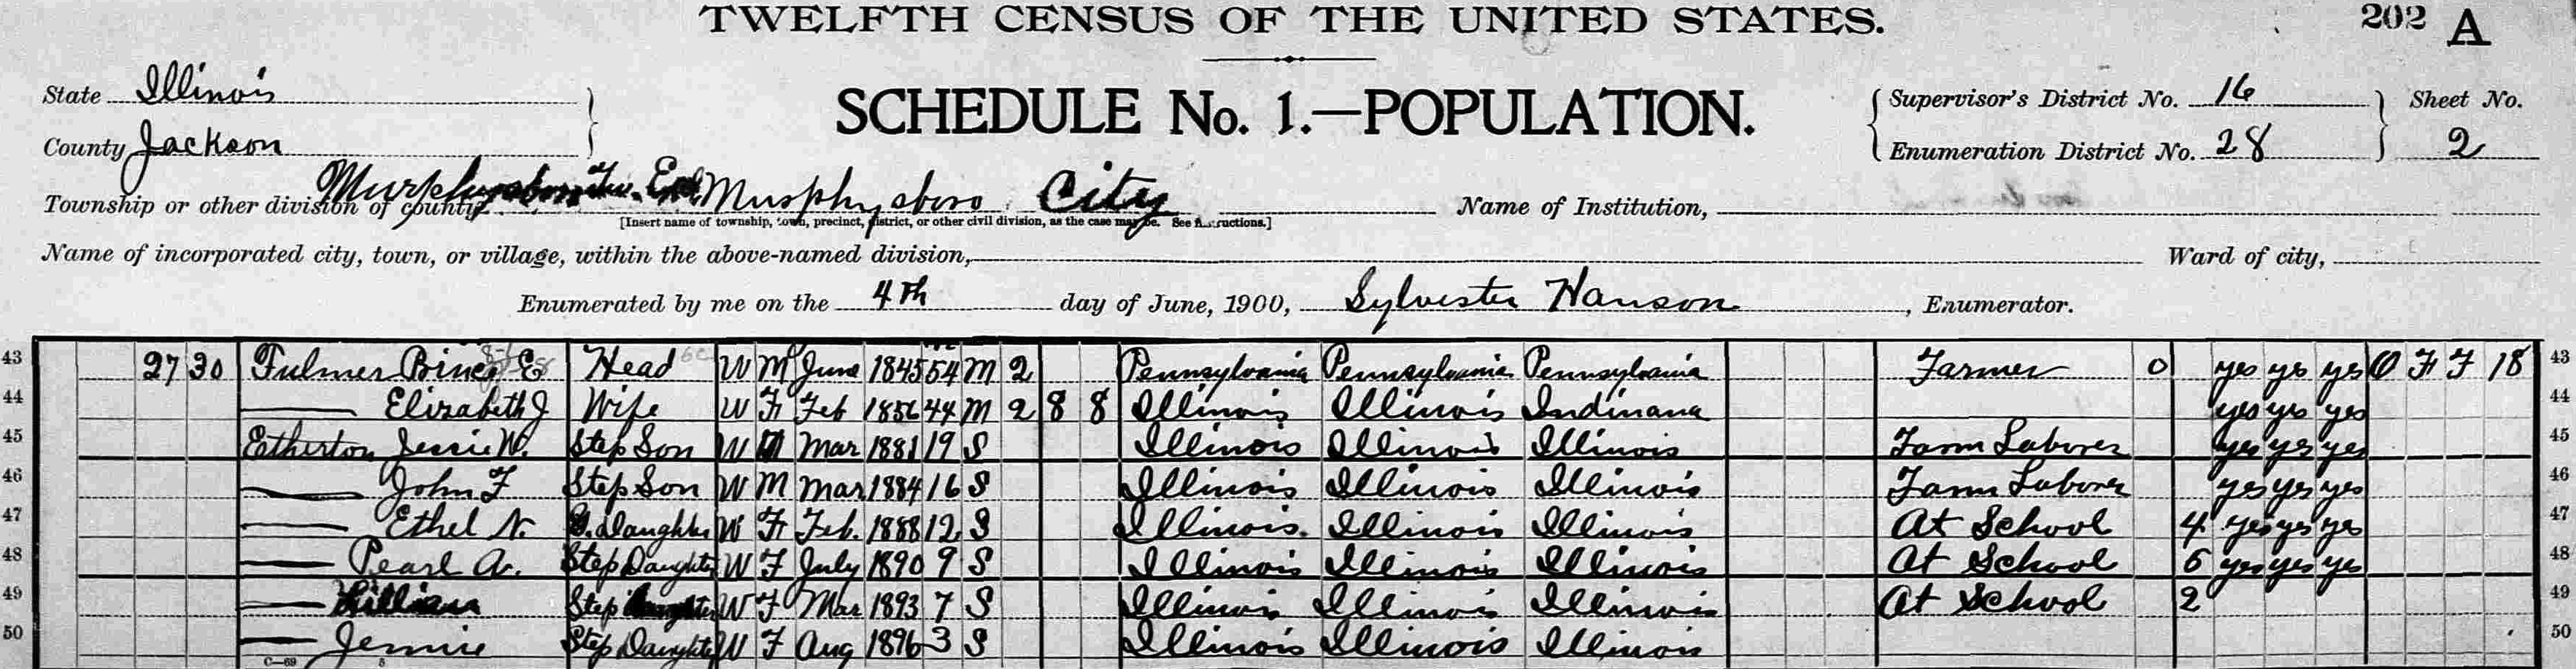 TWELFTH CENSUS OF THE UNITED STATES.
202 A
State Illinois
County Jackson
SCHEDULE No. 1.—POPULATION.
Supervisor's District No. 16
Enumeration District No. 28
Sheet No.
2
Township or other division of county Murphysboro Murphysboro City
[Insert name of township, town, precinct, district, or other civil division, as the case may be. See instructions.]
Name of Institution,
Name of incorporated city, town, or village, within the above-named division,
Ward of city,
Enumerated by me on the 4th day of June, 1900, Sylvester Hanson, Enumerator.
43 27 30 Fulmer E Head W M June 1845 54 M 2 Pennsylvania Pennsylvania Pennsylvania Farmer 0 yes yes yes O F F 18 43
44 — Elizabeth J Wife W F Feb 1856 44 M 2 8 8 Illinois Illinois Indinana yes yes yes 44
45 Etherton Jessie W. Step Son W M Mar 1881 19 S Illinois Illinois Illinois Farm Laborer yes yes yes 45
46 — John F Step Son W M Mar 1884 16 S Illinois Illinois Illinois Farm Laborer yes yes yes 46
47 — Ethel N. Daughter W F Feb. 1888 12 S Illinois. Illinois Illinois At School 4 yes yes yes 47
48 — Pearl A. Step Daughter W F July 1890 9 S Illinois Illinois Illinois At School 6 yes yes yes 48
49 — Lillian Step Daughter W F Mar 1893 7 S Illinois Illinois Illinois At School 2 49
50 — Jennie Step Daughter W F Aug 1896 3 S Illinois Illinois Illinois 50
C—69